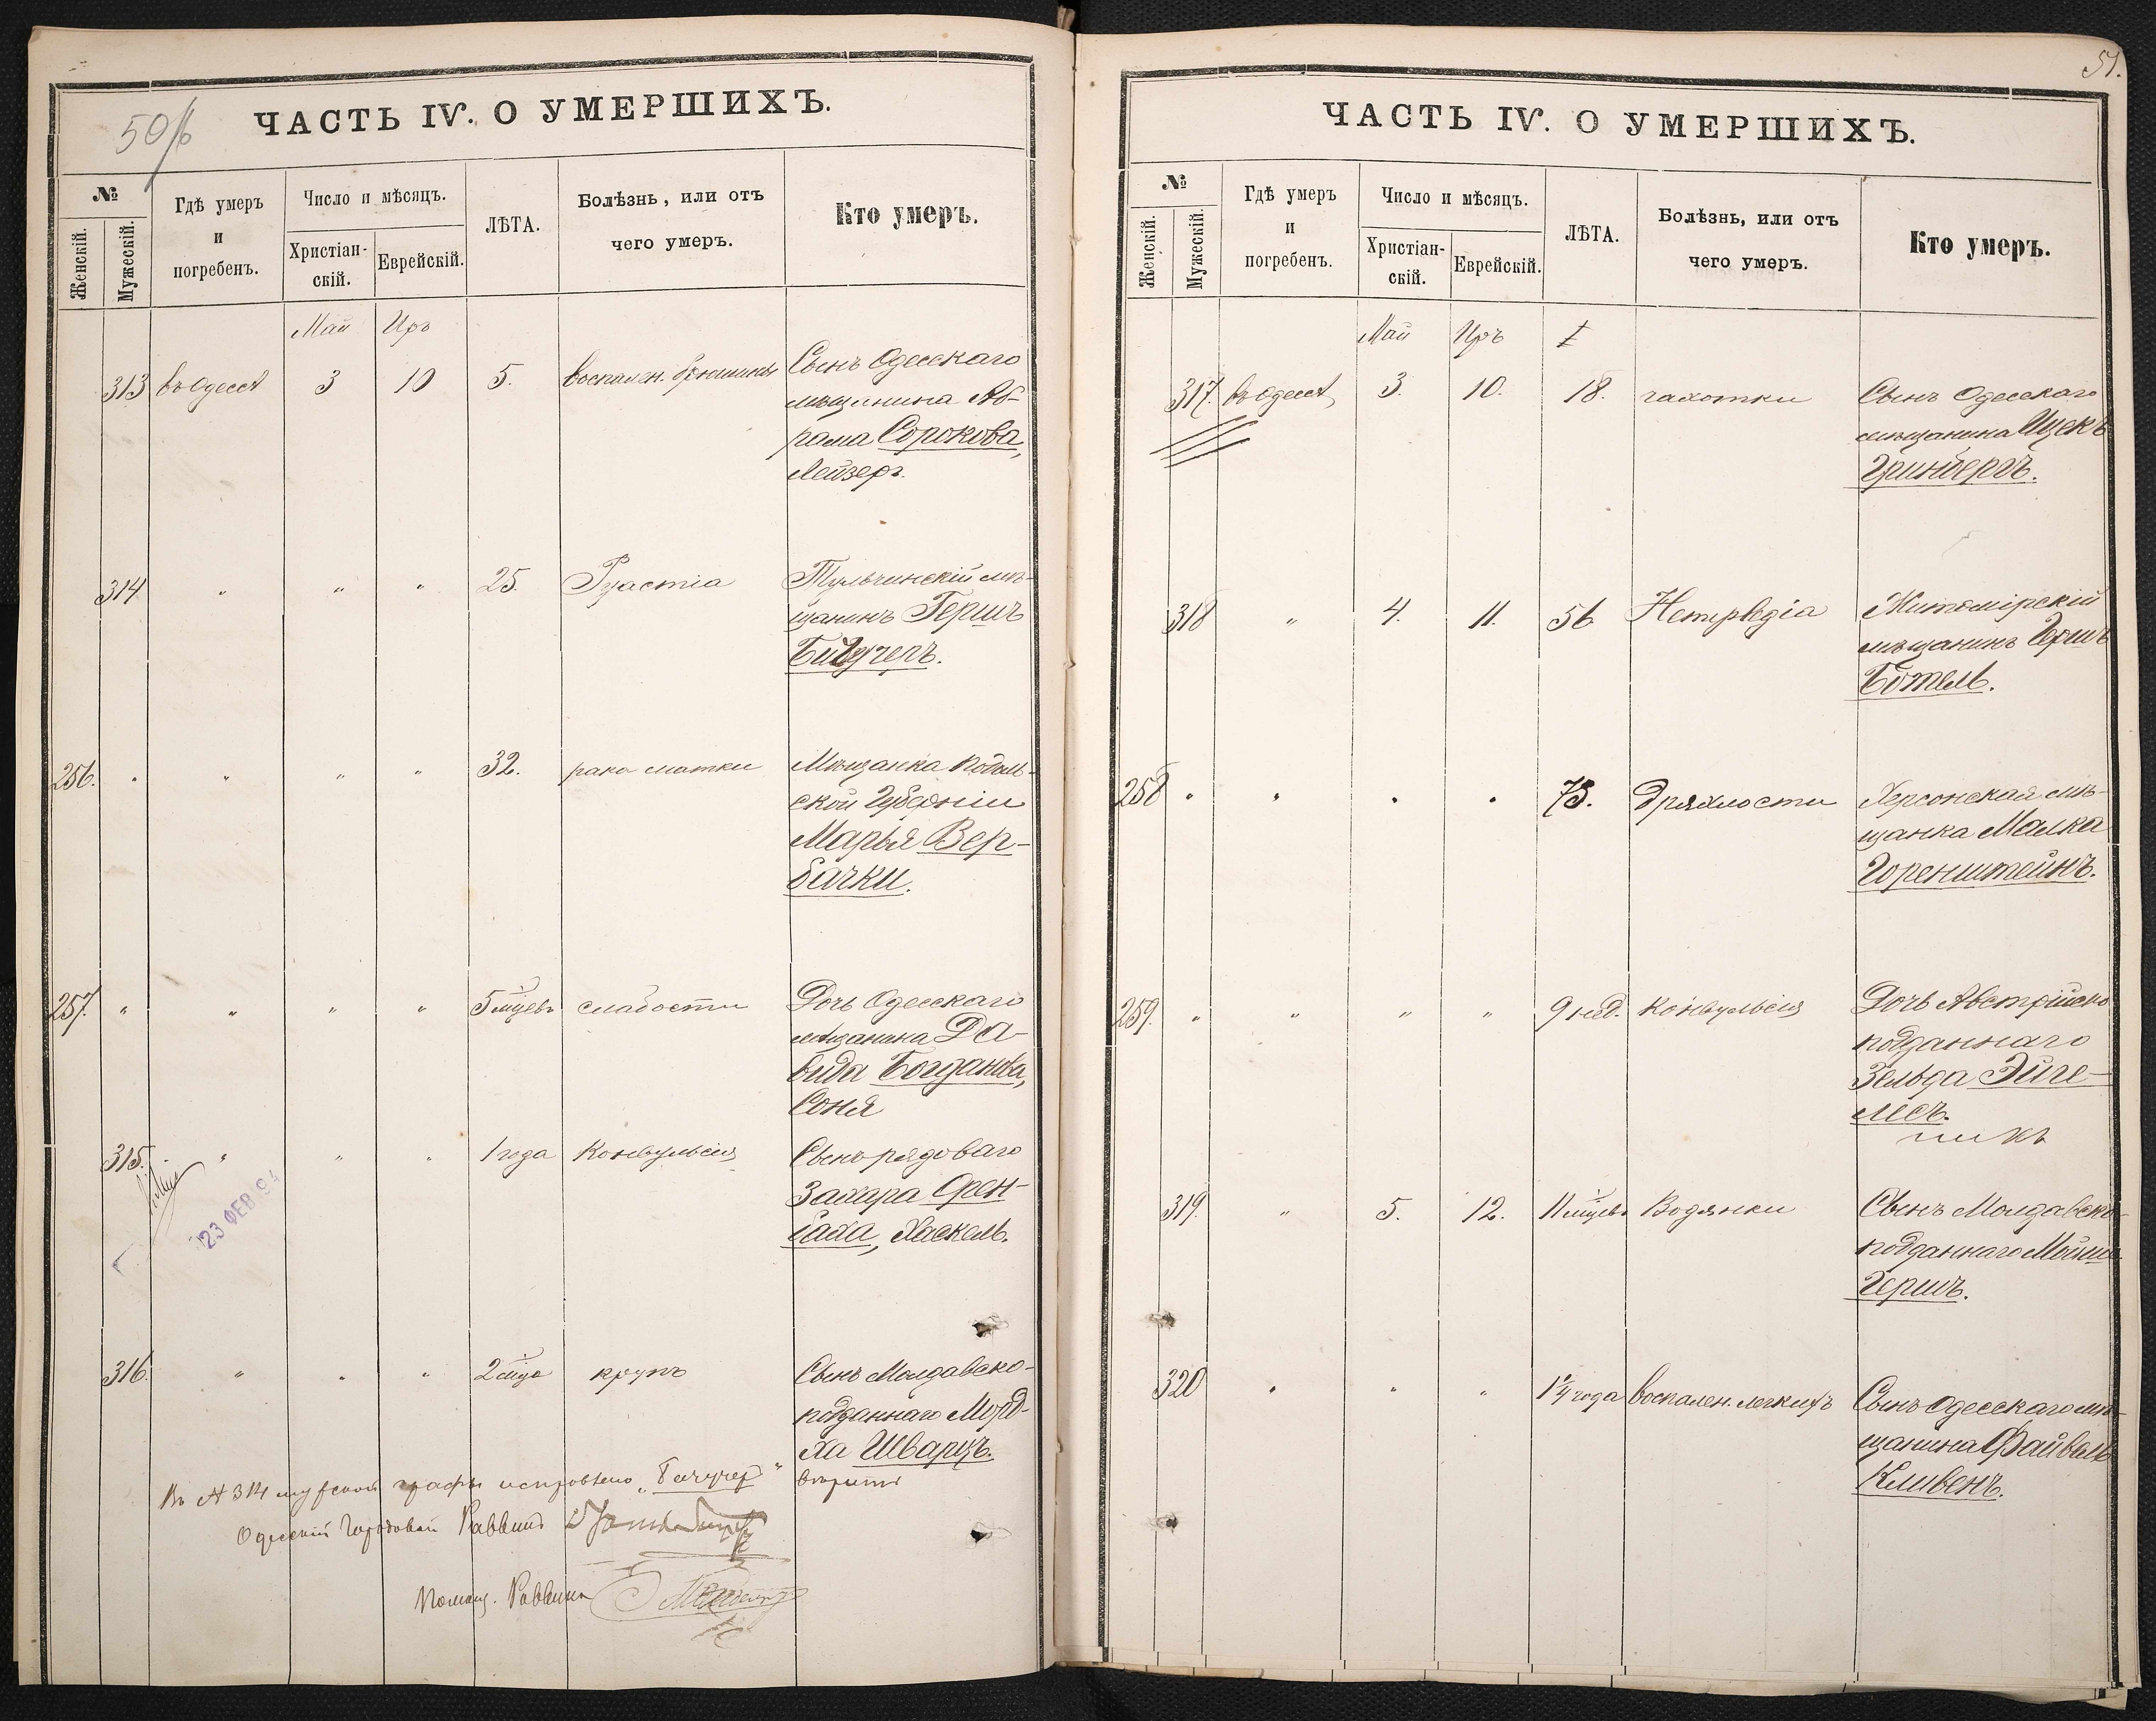 50/б
ЧАСТЬ IV. О УМЕРШИХЪ.
№
Женскій.
Мужескій.
Гдѣ умеръ
и
погребенъ.
Число и мѣсяцъ.
Христіан-
скій.
Еврейскій.
ЛѢТА.
Болѣзнь, или отъ
чего умеръ.
Кто умеръ.
Май Иръ
313 въ Одессѣ 3 10 5. воспален. брюшины Сынъ Одесскаго
мѣщанина Аб-
рама Сорокова,
Лейзеръ.
314 " " " 25. Тульчинскій мѣ-
щанинъ Гершъ
Бичучеръ.
256. " " " " 32. рака матки Мѣщанка Подоль-
ской Губерніи
Марья Вер-
бачки.
257. " " " " 5 мцевъ слабости Дочь Одесскаго
мѣщанина Да-
вида Богданова,
Соня
315. " " " 1 года Конвульсія Сынъ рядоваго
Захара Орен-
баха, Хаскель.
23 ФЕВ 94
316. " " " 2 мца крупъ Сынъ Молдавско-
подданнаго Морд-
ха Шварцъ.
Въ № 314 мужской графѣ исправлено „Бичучер" вѣрить
Одесскій Городовой Раввинъ
Помощ. Раввина
51.
ЧАСТЬ IV. О УМЕРШИХЪ.
№
Женскій.
Мужескій.
Гдѣ умеръ
и
погребенъ.
Число и мѣсяцъ.
Христіан-
скій.
Еврейскій.
ЛѢТА.
Болѣзнь, или отъ
чего умеръ.
Кто умеръ.
Май Иръ
317. въ Одессѣ 3. 10. 18. чахотки Сынъ Одесскаго
мѣщанина Ицекъ
Гринбергъ.
318 " 4. 11. 56 Житомірскій
мѣщанинъ Гершъ
Ботель.
258 " " " " 75. Дряхлости Херсонская мѣ-
щанка Малка
Горенштейнъ.
259. " " " " 9 нед. Конвульсія Дочь Австрійско
подданнаго
Зельда Эйге-
лесъ.
319. " 5. 12. 11 мцевъ Водянки Сынъ Молдавско-
подданнаго Мойше
Гершъ.
320 " " " 1 1/4 года воспален. легкихъ Сынъ Одесскаго мѣ-
щанина Файвель
Кливенъ.